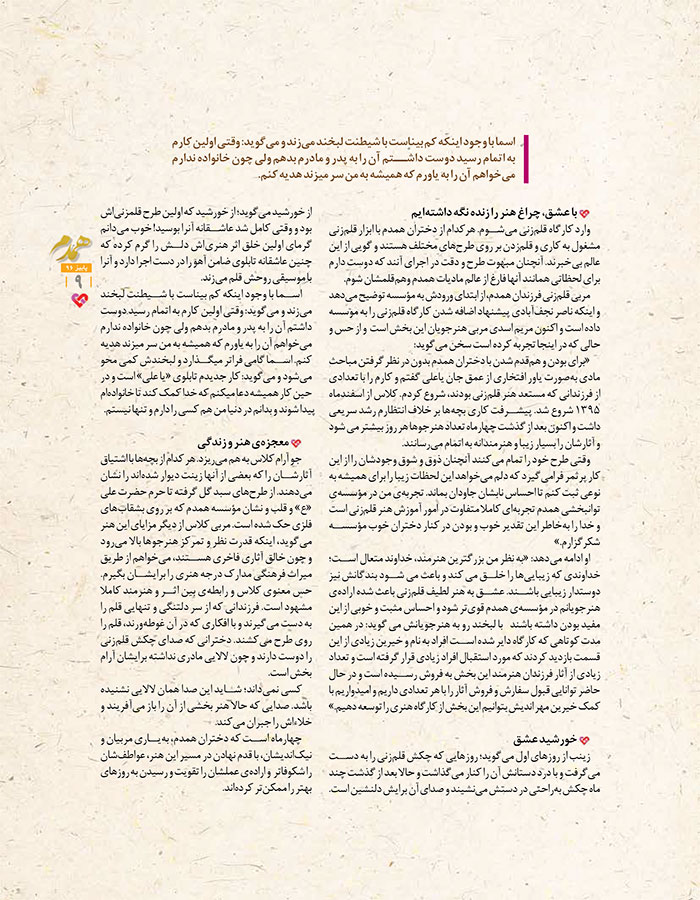 اسما با وجود اینکه کم بیناست با شیطنت لبخند می‌زند و می‌گوید: وقتی اولین کارم
به اتمام رسید دوست داشتم آن را به پدر و مادرم بدهم ولی چون خانواده ندارم
می‌خواهم آن را به یاورم که همیشه به من سر میزند هدیه کنم.
با عشق، چراغ هنر را زنده نگه داشته‌ایم
وارد کارگاه قلم‌زنی می‌شوم. هر کدام از دختران همدم با ابزار قلم‌زنی
مشغول به کاری و قلم‌زدن بر روی طرح‌های مختلف هستند و گویی از این
عالم بی‌خبرند. آنچنان مبهوت طرح و دقت در اجرای آنند که دوست دارم
برای لحظاتی همانند آنها فارغ از عالم مادیات همدم و هم‌قلمشان شوم.
مربی قلم‌زنی فرزندان همدم، از ابتدای ورودش به مؤسسه توضیح می‌دهد
و اینکه ناصر نجف‌آبادی پیشنهاد اضافه شدن کارگاه قلم‌زنی را به مؤسسه
داده است و اکنون مریم اسدی مربی هنرجویان این بخش است و از حس و
حالی که در اینجا تجربه کرده است سخن می‌گوید:
«برای بودن و هم‌قدم شدن با دختران همدم بدون در نظر گرفتن مباحث
مادی به‌صورت یاور افتخاری از عمق جان یاعلی گفتم و کارم را با تعدادی
از فرزندانی که مستعد هنر قلم‌زنی بودند، شروع کردم. کلاس از اسفندماه
۱۳۹۵ شروع شد. پیشرفت کاری بچه‌ها بر خلاف انتظارم رشد سریعی
داشت و اکنون بعد از گذشت چهارماه تعداد هنرجوها هر روز بیشتر می شود
و آثارشان را بسیار زیبا و هنرمندانه به اتمام می‌رسانند.
وقتی طرح خود را تمام می‌کنند آنچنان ذوق و شوق وجودشان را از این
کار پرثمر فرامی گیرد که دلم می‌خواهد این لحظات زیبا را برای همیشه به
نوعی ثبت کنم تا احساس نابشان جاودان بماند. تجربه‌ی من در مؤسسه‌ی
توانبخشی همدم تجربه‌ای کاملا متفاوت در امور آموزش هنر قلم‌زنی است
و خدا را به‌خاطر این تقدیر خوب و بودن در کنار دختران خوب مؤسسه
شکرگزارم.»
او ادامه می‌دهد: «به نظر من بزرگترین هنرمند، خداوند متعال است؛
خداوندی که زیبایی‌ها را خلق می کند و باعث می شود بندگانش نیز
دوستدار زیبایی باشند. عشق به هنر لطیف قلم‌زنی باعث شده اراده‌ی
هنرجویانم در مؤسسه‌ی همدم قوی‌تر شود و احساس مثبت و خوبی از این
مفید بودن داشته باشند با لبخند رو به هنرجویانش می گوید: در همین
مدت کوتاهی که کارگاه دایر شده است افراد به‌نام و خیرین زیادی از این
قسمت بازدید کردند که مورد استقبال افراد زیادی قرار گرفته است و تعداد
زیادی از آثار فرزندان هنرمند این بخش به فروش رسیده است و در حال
حاضر توانایی قبول سفارش و فروش آثار را با هر تعدادی داریم و امیدواریم با
کمک خیرین مهراندیش بتوانیم این بخش از کارگاه هنری را توسعه دهیم.»
خورشید عشق
زینب از روزهای اول می‌گوید؛ روزهایی که چکش قلم‌زنی را به دست
می‌گرفت و با درد دستانش آن را کنار می‌گذاشت و حالا بعد از گذشت چند
ماه چکش به‌راحتی در دستش می‌نشیند و صدای آن برایش دلنشین است.
از خورشید می‌گوید؛ از خورشید که اولین طرح قلمزنی‌اش
بود و وقتی کامل شد عاشقانه آنرا بوسید! خوب می‌دانم
گرمای اولین خلق اثر هنری‌اش دلش را گرم کرده که
چنین عاشقانه تابلوی ضامن آهو را در دست اجرا دارد و آنرا
با موسیقی روحش قلم می‌زند.
اسما با وجود اینکه کم بیناست با شیطنت لبخند
می‌زند و می‌گوید: وقتی اولین کارم به اتمام رسید. دوست
داشتم آن را به پدر و مادرم بدهم ولی چون خانواده ندارم
می‌خواهم آن را به یاورم که همیشه به من سر میزند هدیه
کنم. اسما گامی فراتر میگذارد و لبخندش کمی محو
می‌شود و می‌گوید: کار جدیدم تابلوی «یا علی» است و در
حین کار همیشه دعا میکنم که خدا کمک کند تا خانواده‌ام
پیدا شوند و بدانم در دنیا من هم کسی را دارم و تنها نیستم.
معجزه‌ی هنر و زندگی
جو آرام کلاس به هم می‌ریزد. هر کدام از بچه‌ها با اشتیاق
آثارشان را که بعضی از آنها زینت دیوار شده‌اند را نشان
می‌دهند. از طرح‌های سبد گل گرفته تا حرم حضرت علی
«ع» و قلب و نشان مؤسسه همدم که بر روی بشقاب‌های
فلزی حک شده است. مربی کلاس از دیگر مزایای این هنر
می گوید، اینکه قدرت نظر و تمرکز هنرجوها بالا می‌رود
و چون خالق آثاری فاخری هستند، می‌خواهم از طریق
میراث فرهنگی مدارک درجه هنری را برایشان بگیرم.
حس معنوی کلاس و رابطه‌ی بین اثر و هنرمند کاملا
مشهود است. فرزندانی که از سر دلتنگی و تنهایی قلم را
به دست می گیرند و با افکاری که در آن غوطه‌ورند، قلم را
روی طرح می‌کشند. دخترانی که صدای چکش قلم‌زنی
را دوست دارند و چون لالایی مادری نداشته برایشان آرام
بخش است.
کسی نمی‌داند؛ شاید این صدا همان لالایی نشنیده
باشد. صدایی که حالا هنر بخشی از آن را باز می‌آفریند و
خلاءاش را جبران می‌کند.
چهارماه است که دختران همدم، به یاری مربیان و
نیک‌اندیشان، با قدم نهادن در مسیر این هنر، عواطف‌شان
را شکوفاتر و اراده‌ی عملشان را تقویت و رسیدن به روزهای
بهتر را ممکن‌تر کرده‌اند.
همدم
پاییز ۹۶
۹